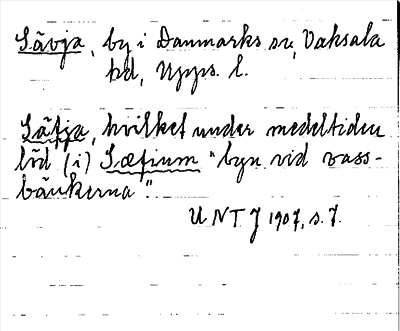 Sävja, by i Danmarks sn, Vaksala
hd, Upps. l.
Säfja, hvilket under medeltiden
löd (i) Sæfium "byn vid vass-
bänkerna".
UNT J 1907, s. 7.